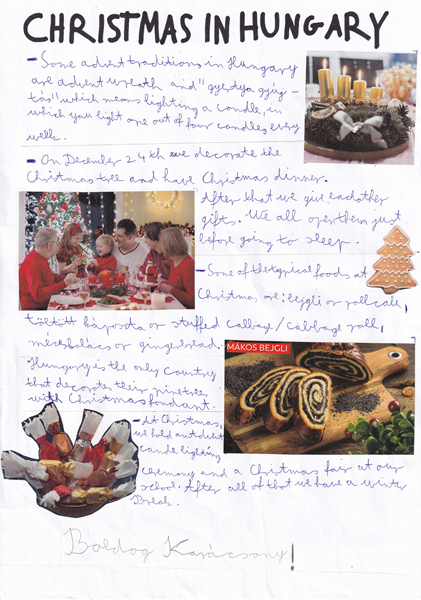 CHRISTMAS IN HUNGARY
- Some advent traditions in Hungary
are advent wreath and "gyertya gyúj-
tás" which means lighting a candle, in
which you light one out of four candles every
week.
- On December 24th we decorate the
Christmas tree and have Christmas dinner.
After that we give eachother
gifts. We all open them just
before going to sleep.
- Some of the typical foods at
Christmas are: bejgli or roll cake,
töltött káposta or stuffed cabbage/cabbage roll,
mézeskalács or gingerbread.
Hungary is the only country
that decorates their pinetrees
with Christmas fondant.
MÁKOS BEJGLI
- At Christmas,
we hold an advent
candle lighting
ceremony and a Christmas fair at our
school. After all of that we have a winter
Break.
Boldog Karácsony!